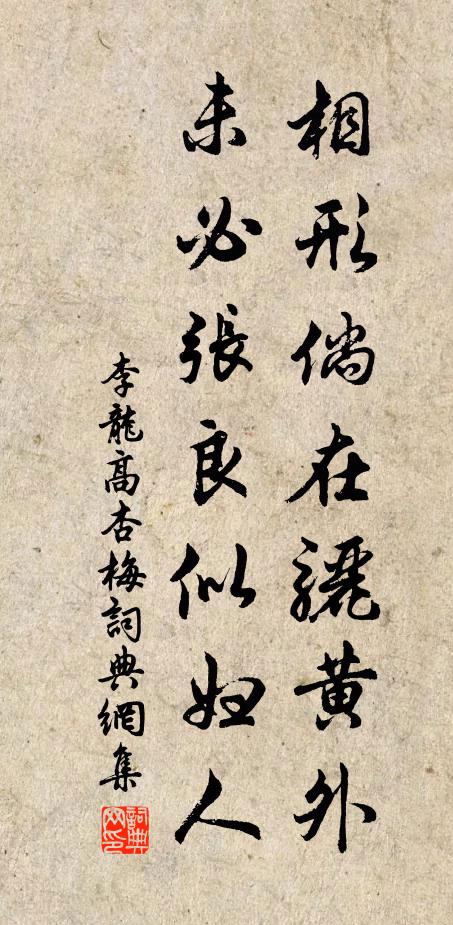 相形倘在驪黃外
未必張良似婦人
李龍高杏梅詞典網集
詞典网印